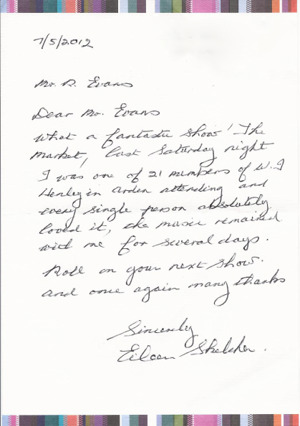 7/5/2012
Mr. D. Evans
Dear Mr. Evans
What a fantastic show! The
Market, last Saturday night
I was one of 21 members of W.I
Henley in Arden attending and
every single person absolutely
loved it, the music remained
with me for several days.
Roll on your next show.
and once again many thanks
Sincerely
Eileen